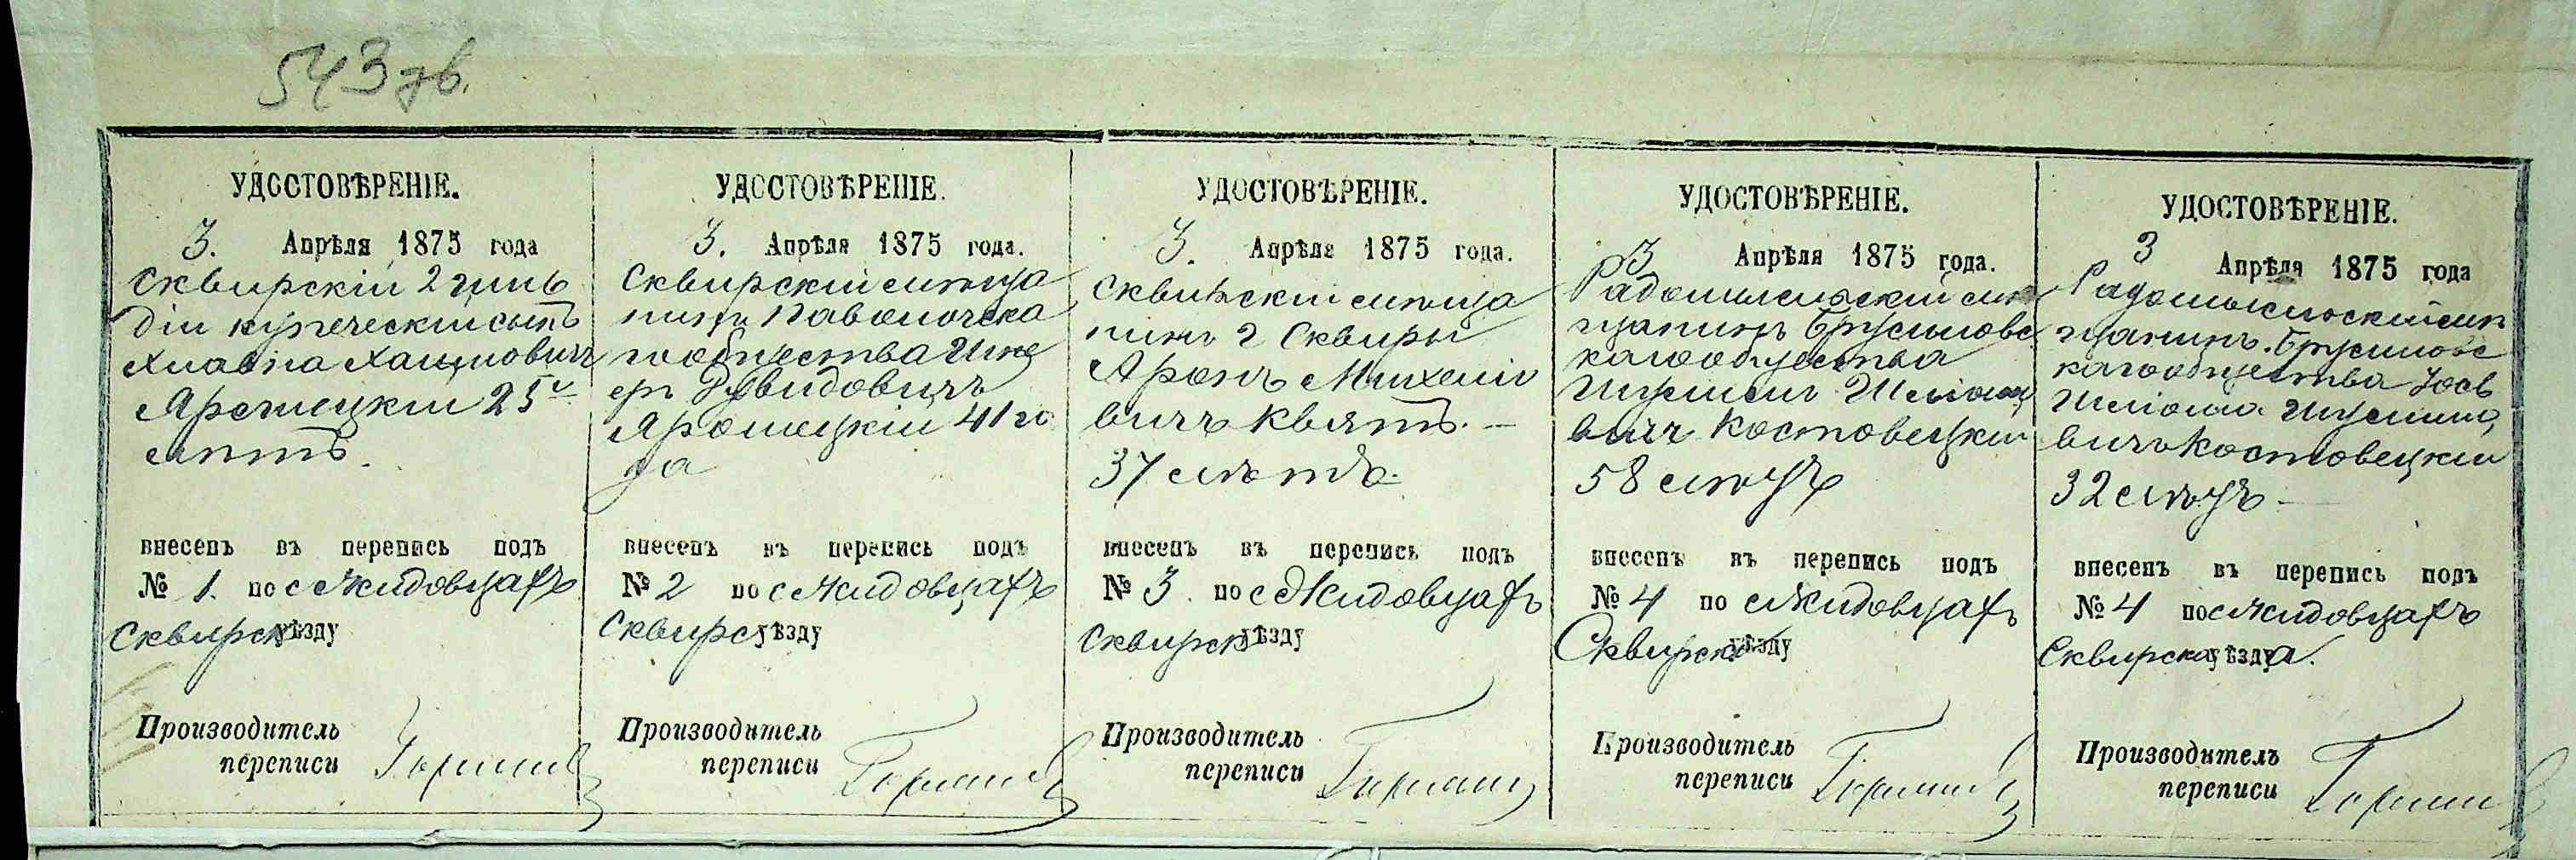 543 зв.
УДОСТОВѢРЕНІЕ.
3. Апрѣля 1875 года
Сквирскій 2 гиль
діи купеческій сынъ
Хаимовичъ
25
лѣтъ.
внесенъ въ перепись подъ
№ 1. по с Жидовцахъ
Сквирск уѣзду
Производитель
переписи
УДОСТОВѢРЕНІЕ.
3. Апрѣля 1875 года.
Сквирскій мѣща
нинъ Паволочска
го общества
Рувидовичъ
Ярошецкій 41 го
да
внесенъ въ перепись подъ
№ 2 по с Жидовцахъ
Сквирс уѣзду
Производитель
переписи
УДОСТОВѢРЕНІЕ.
3. Апрѣля 1875 года.
Сквирскій мѣща
нинъ г Сквиры
Аронъ Михелio
вичъ Квятъ. —
37 лѣтъ.
внесенъ въ перепись подъ
№ 3 по с Жидовцахъ
Сквирск уѣзду
Производитель
переписи
УДОСТОВѢРЕНІЕ.
3 Апрѣля 1875 года.
Радомысльскій мѣ
щанинъ Брусиловс
каго общества
вичъ Костовецкій
58 лѣтъ
внесенъ въ перепись подъ
№ 4 по с Жидовцахъ
Сквирск уѣзду
Производитель
переписи
УДОСТОВѢРЕНІЕ.
3 Апрѣля 1875 года
Радомысльскій мѣ
щанинъ Брусиловс
каго общества Іось
вичъ Костовецкій
32 лѣтъ —
внесенъ въ перепись подъ
№ 4 по с Жидовцахъ
Сквирска уѣзда.
Производитель
переписи